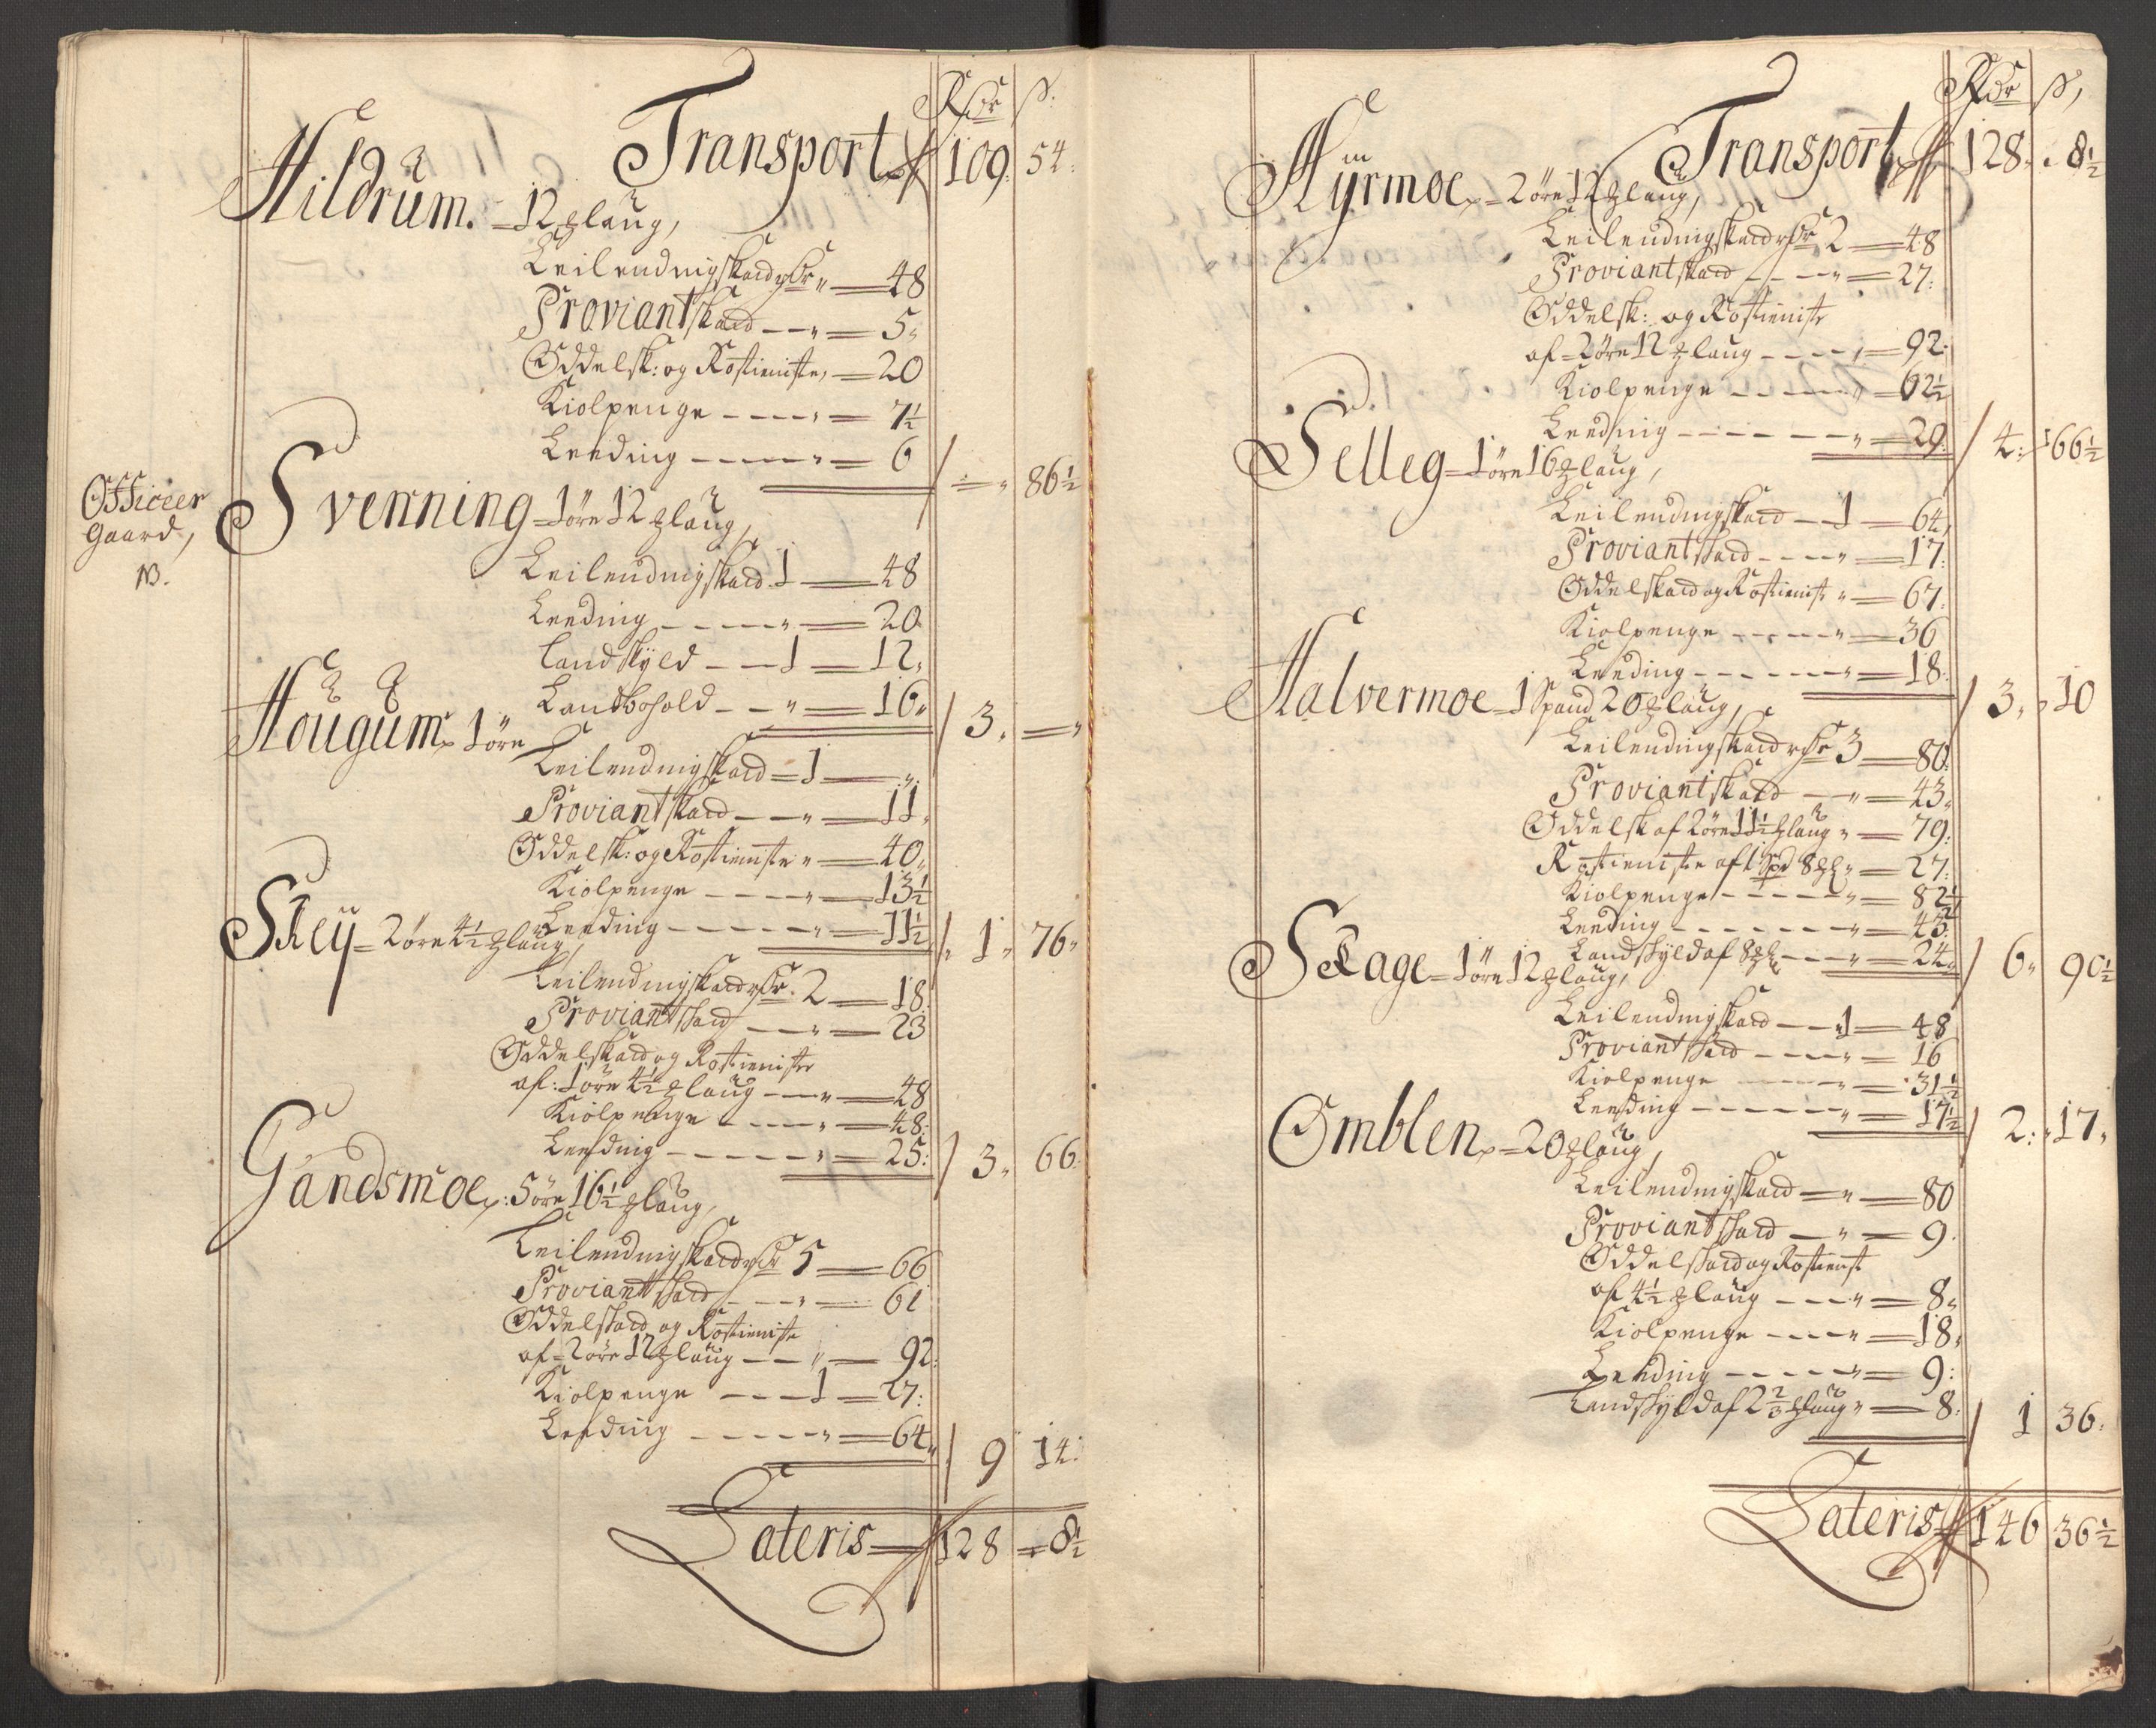 Rdr ß:
Transport 109. 54:
Hildrum. = 12 ℔ laug,
Leilendingskaed rdr „ — 48
Proviantskaed — — „ = 5„
Oddelsk: og Rostieniste, — 20
Kiolpenge - - - - , = 7½
Leeding - - - - „ = 6
= „ 86½
Officeer
Gaard,
NB.
Svenning = 1 öre 12 ℔ laug,
Leilendingskaed 1 — 48
Leeding - - - - „ = 20
Landskyld - - 1 = 12„
Landbohold - - „ = 16„
3. = „
Hougum, 1 öre
Leilendingskaed = 1 — „
Proviantskaed - - „ = 11„
Oddelsk: og Rostieniste „ = 40„
Kiolpenge - - - - „ = 13½
Leeding - - - - - „ = 11½
1„ 76„
Skey = 2 öre 4½ ℔ laug,
Leilendingskaed rdr. 2 — 18:
Proviantskaed - - „ = 23
Oddelskaed og Rostieniste
af: 1 öre 4½ ℔ laug - - „ = 48
Kiolpenge - - - - , = 48:
Leeding - - - - - , = 25:
3„ 66
Gandsmoe,: 5 öre 16½ ℔ laug,
Leilendingskaed rdr 5 — 66
Proviantskaed - - - „ = 61
Oddelskaed og Rostieniste
af = 2 öre 12 ℔ laug - - „ — 92:
Kiolpenge - - - 1 = 27:
Leeding - - - - - „ = 64„
9 14:
Lateris = 128 = 8½
Rdr ß,
Transport 128„ „ 8½
Hyrmoe, = 2 öre 12 ℔ laug,
Leilendingskaed rdr 2 — 48
Proviantskaed - - - „ = 27:
Oddelsk: og Rostieniste
af = 2 öre 12 ℔ laug - - - „ = 92:
Kiolpenge - - - - - „ = 62½
Leeding - - - - - - „ = 29:
4: 66½
Selleg = 1 öre 16 ℔ laug,
Leilendingskaed — 1 — 64,
Proviantskaed - - - „ = 17:
Oddelskaed og Rostienist „ = 67:
Kiolpenge - - - - - „ = 36
Leeding - - - - - - „ = 18:
3„ „ 10
Halvermoe = 1 Spand 20 ℔ laug,
Leilendingskaed rdr 3 — 80:
Proviantskaed - - „ = 43„
Oddelsk af 2 öre 11½ ℔ laug „ — 79:
Rostieniste af 1 Spd 8 ℔ „ = 27:
Kiolpenge - - - - - „ = 82½
Leeding - - - - - - „ = 43:
Landskyld af 8 ℔ - - - „ = 24„
6„ 90½
Skage = 1 öre 12 ℔ laug,
Leilendingskaed - - 1 = 48
Proviantskaed - - - „ = 16
Kiolpenge - - - - „ = 31½
Leeding - - - - - - „ = 17½
2: „ 17„
Omblen, = 20 ℔ laug,
Leilendingskaed = „ = 80
Proviantskaed — „ = 9.
Oddelskaed og Rostienist
af 4½ ℔ laug - - - „ = 8„
Kiolpenge - - - - „ = 18„
Leeding - - - - - „ = 9:
Landskyld af 2⅔ ℔ laug „ = 8:
1 36:
Lateris 146 36½